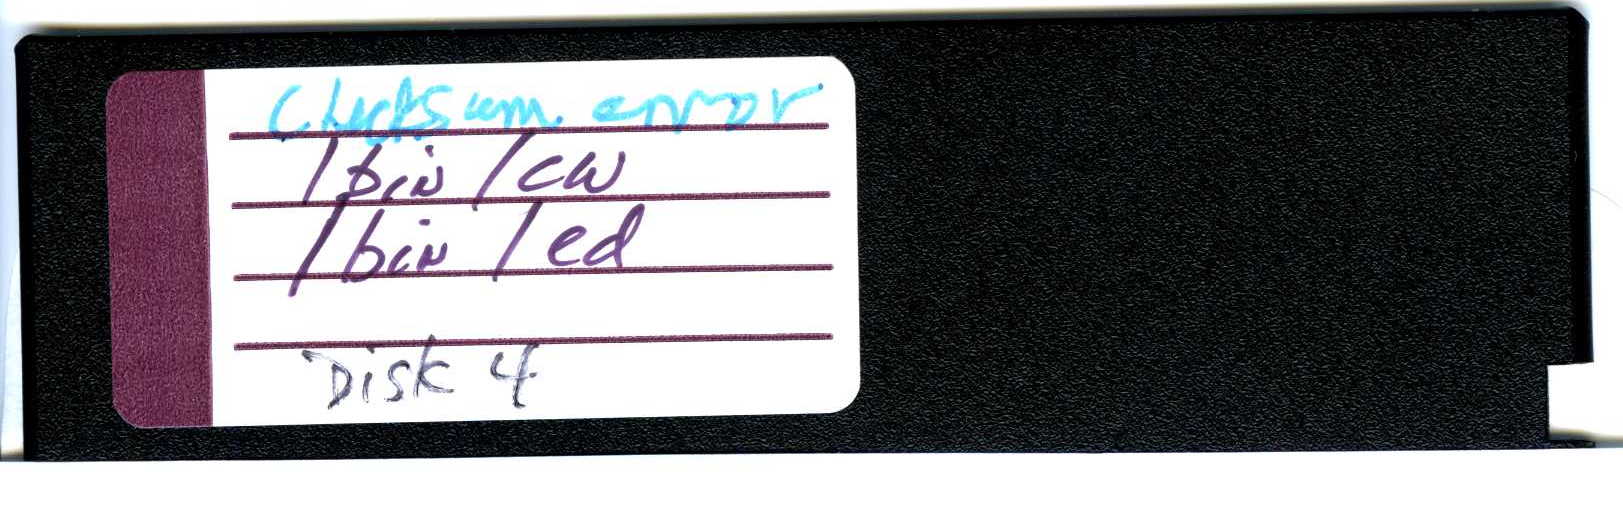 Checksum error
/bin/cw
/bin/ed
Disk 4